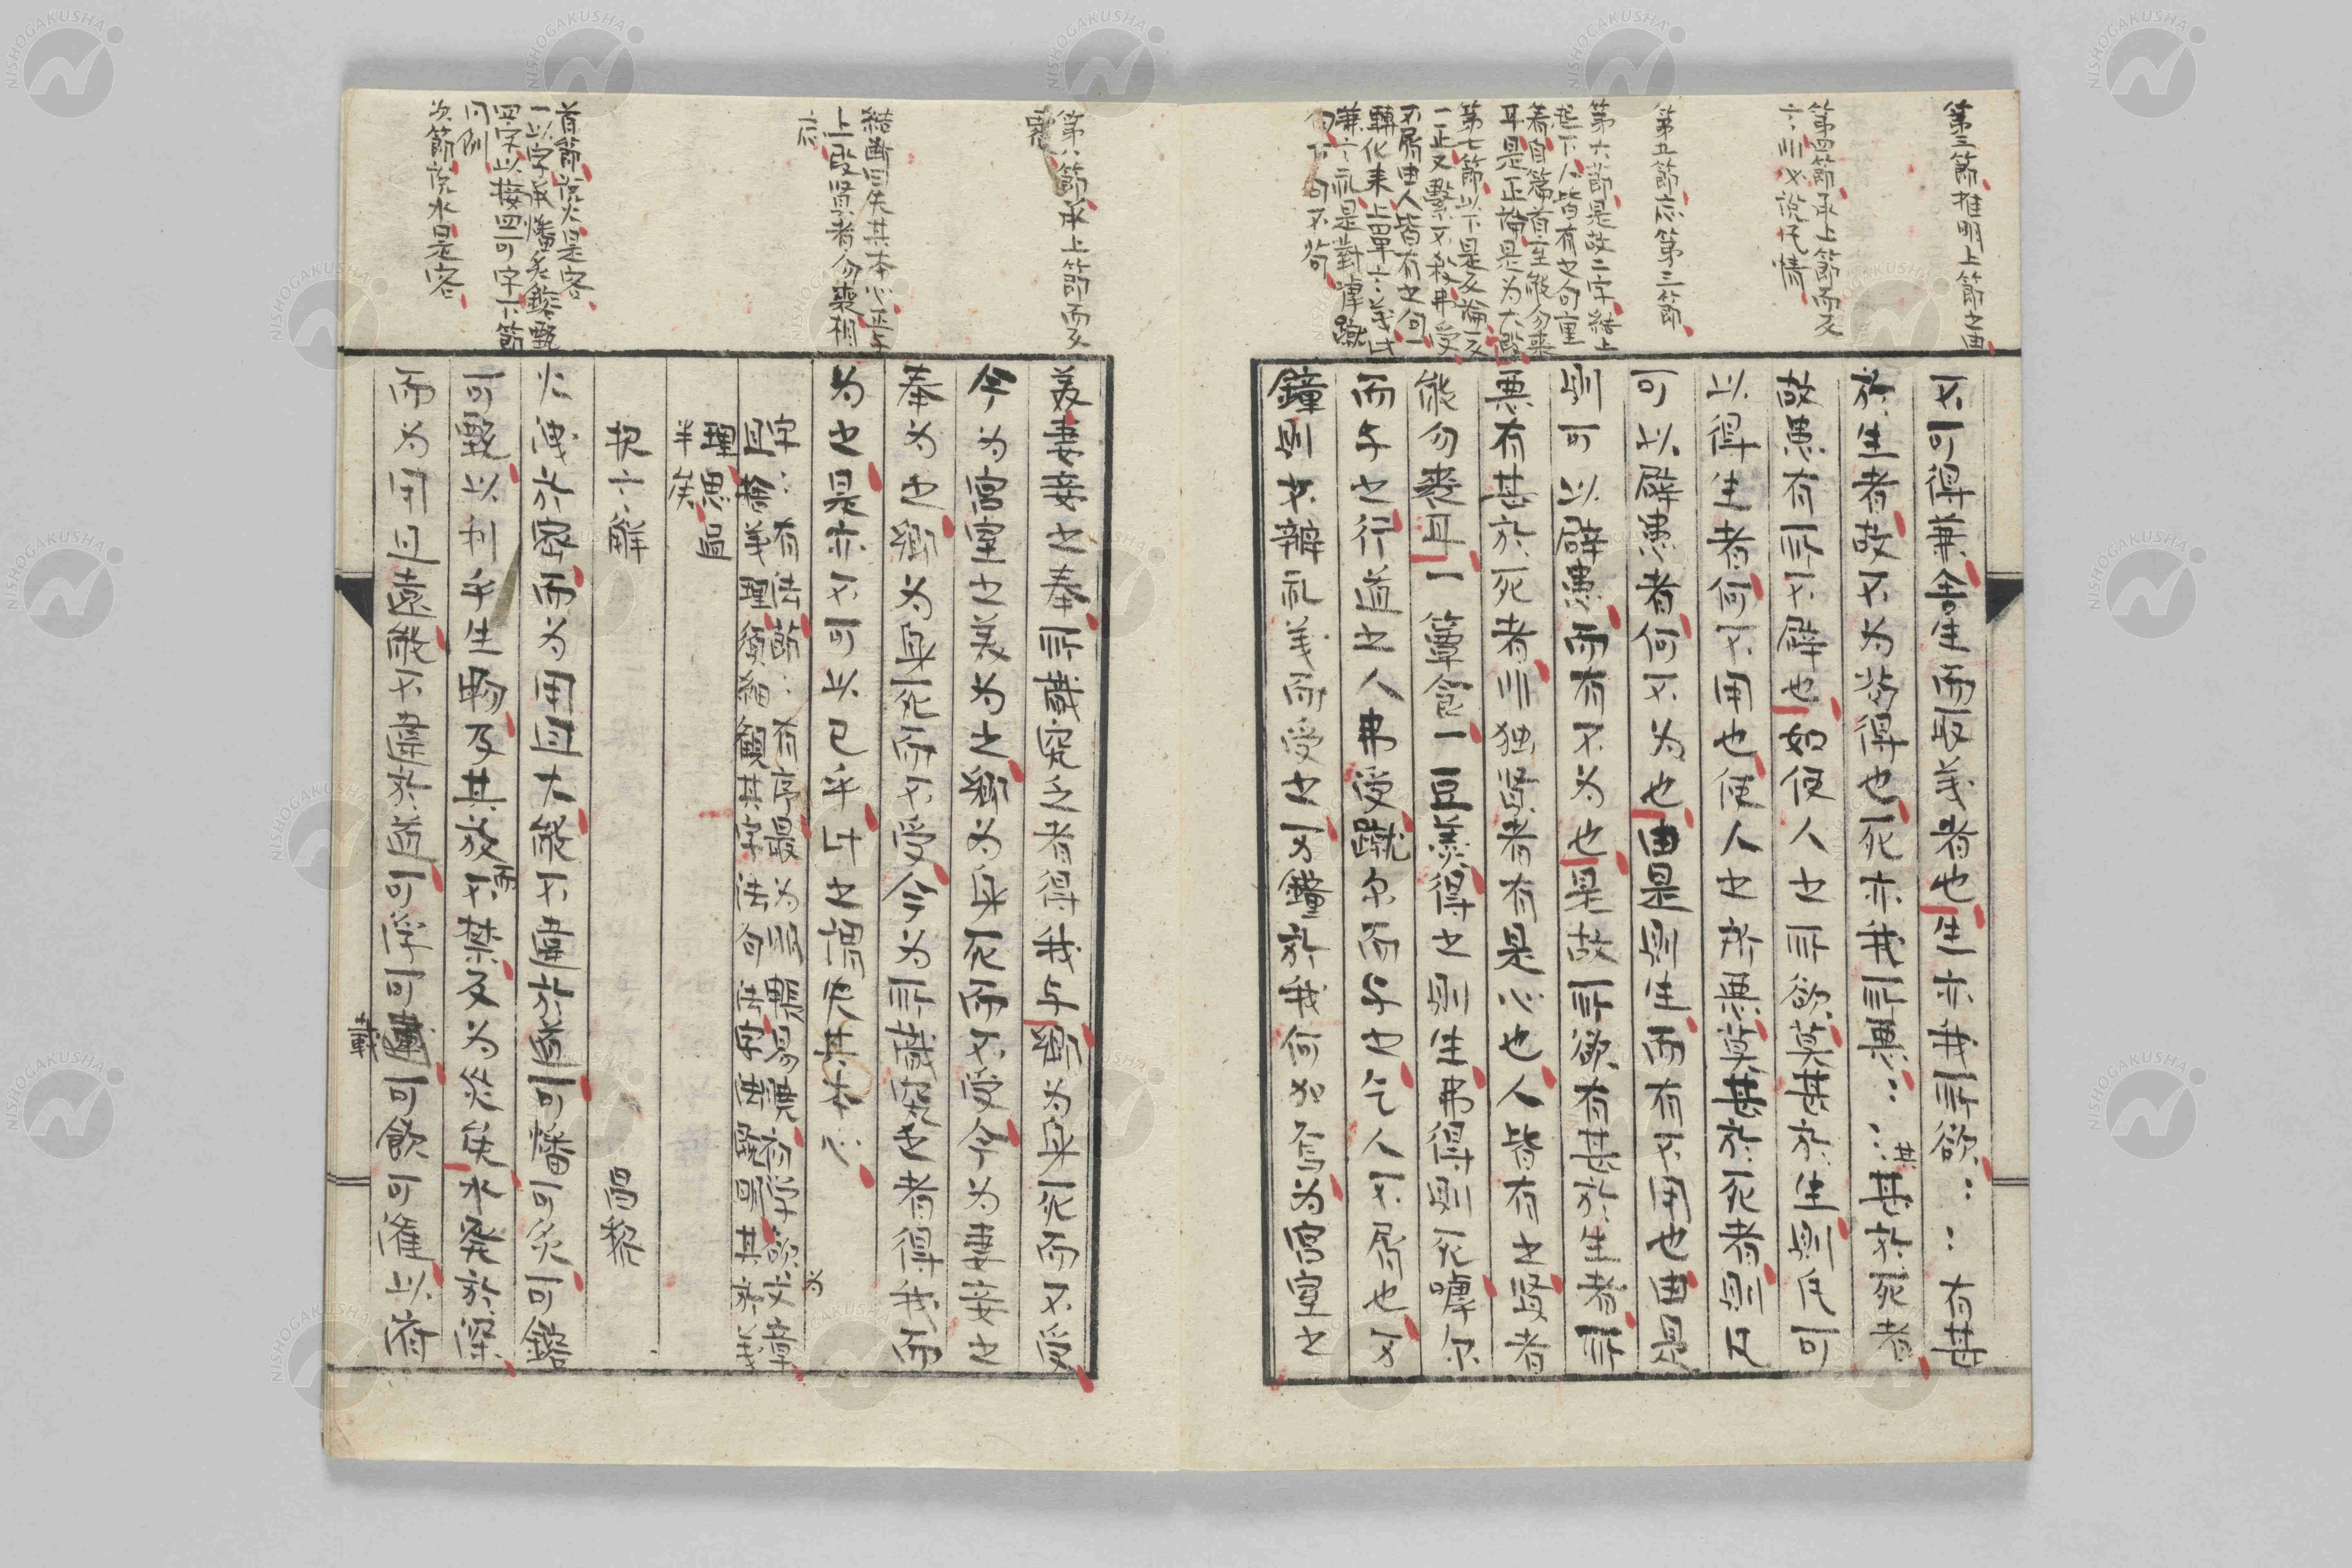 第三節推明上節之由
第四節承上節而反
六則以説凡情
第五節応第三節
第六節是故二字結上
起下人皆有之句重
着自篇首至能勿喪
耳是正論是為大段
第七節以下是反論又
一正又繋不殺弗受
不屑由人皆有之句
転化来上単六義此
兼六礼是対嘑蹴
句下句不苟
不可得兼舎生而取義者也生亦我所欲〻〻有甚
於生者故不為苟得也死亦我所悪〻〻甚於死者
故患有所不辟也如使人之所欲莫甚於生則凡可
以得生者何不用也使人之所悪莫甚於死者則凡
可以辟患者何不為也由是則生而有不用也由是
則可以辟患而有不為也是故所欲有甚於生者所
悪有甚於死者非独賢者有是心也人皆有之賢者
能勿喪耳一簞食一豆羹得之則生弗得則死嘑尓
而与之行道之人弗受蹴尓而与之乞人不屑也万
鐘則不辨礼義而受之万鐘於我何加焉為宮室之
第八節承上節而反
結断
上段賢者勿喪相
応
美妻妾之奉所識窮乏者得我与郷為身死而不受
今為宮室之美為之郷為身死而不受今為妻妾之
奉為之郷為身死而不受今為所識窮乏者得我而
為之是亦不可以已乎此之謂失其本心
字〻有法節〻有序最為明暢易読初学欲父章
且審義理須細観其字法句法字法既明其於義
理思過
半矣
択言解 昌黎
首節説火是客
一以字承燔炙鎔甄
四字以接四可字下節
同例
次節説水是客
火洩於密而為用且大能不違於道可燔可炙可鎔
可甄以利乎生物及其放而不禁反為災矣水発於深
而為用且遠能不違於道可浮可載可飲可潅以済